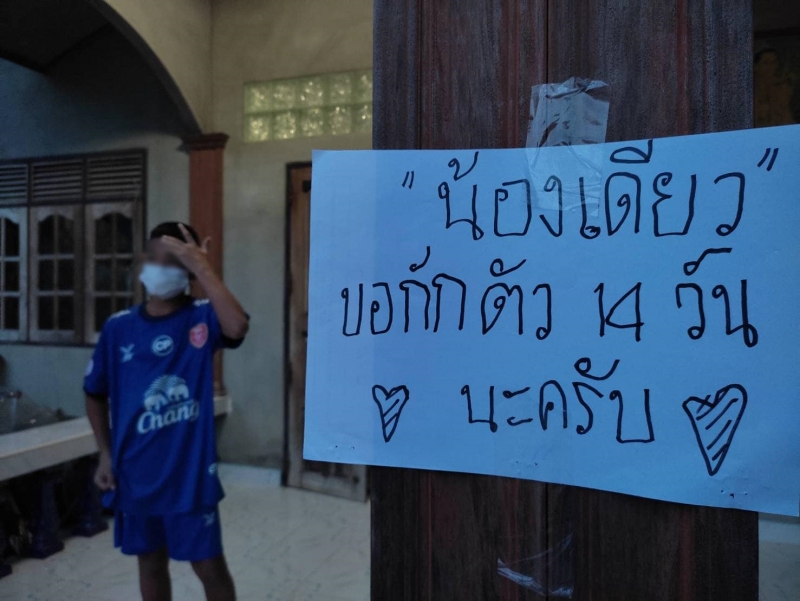 "น้องเดียว"
ขอกักตัว 14 วัน
นะครับ
Chang